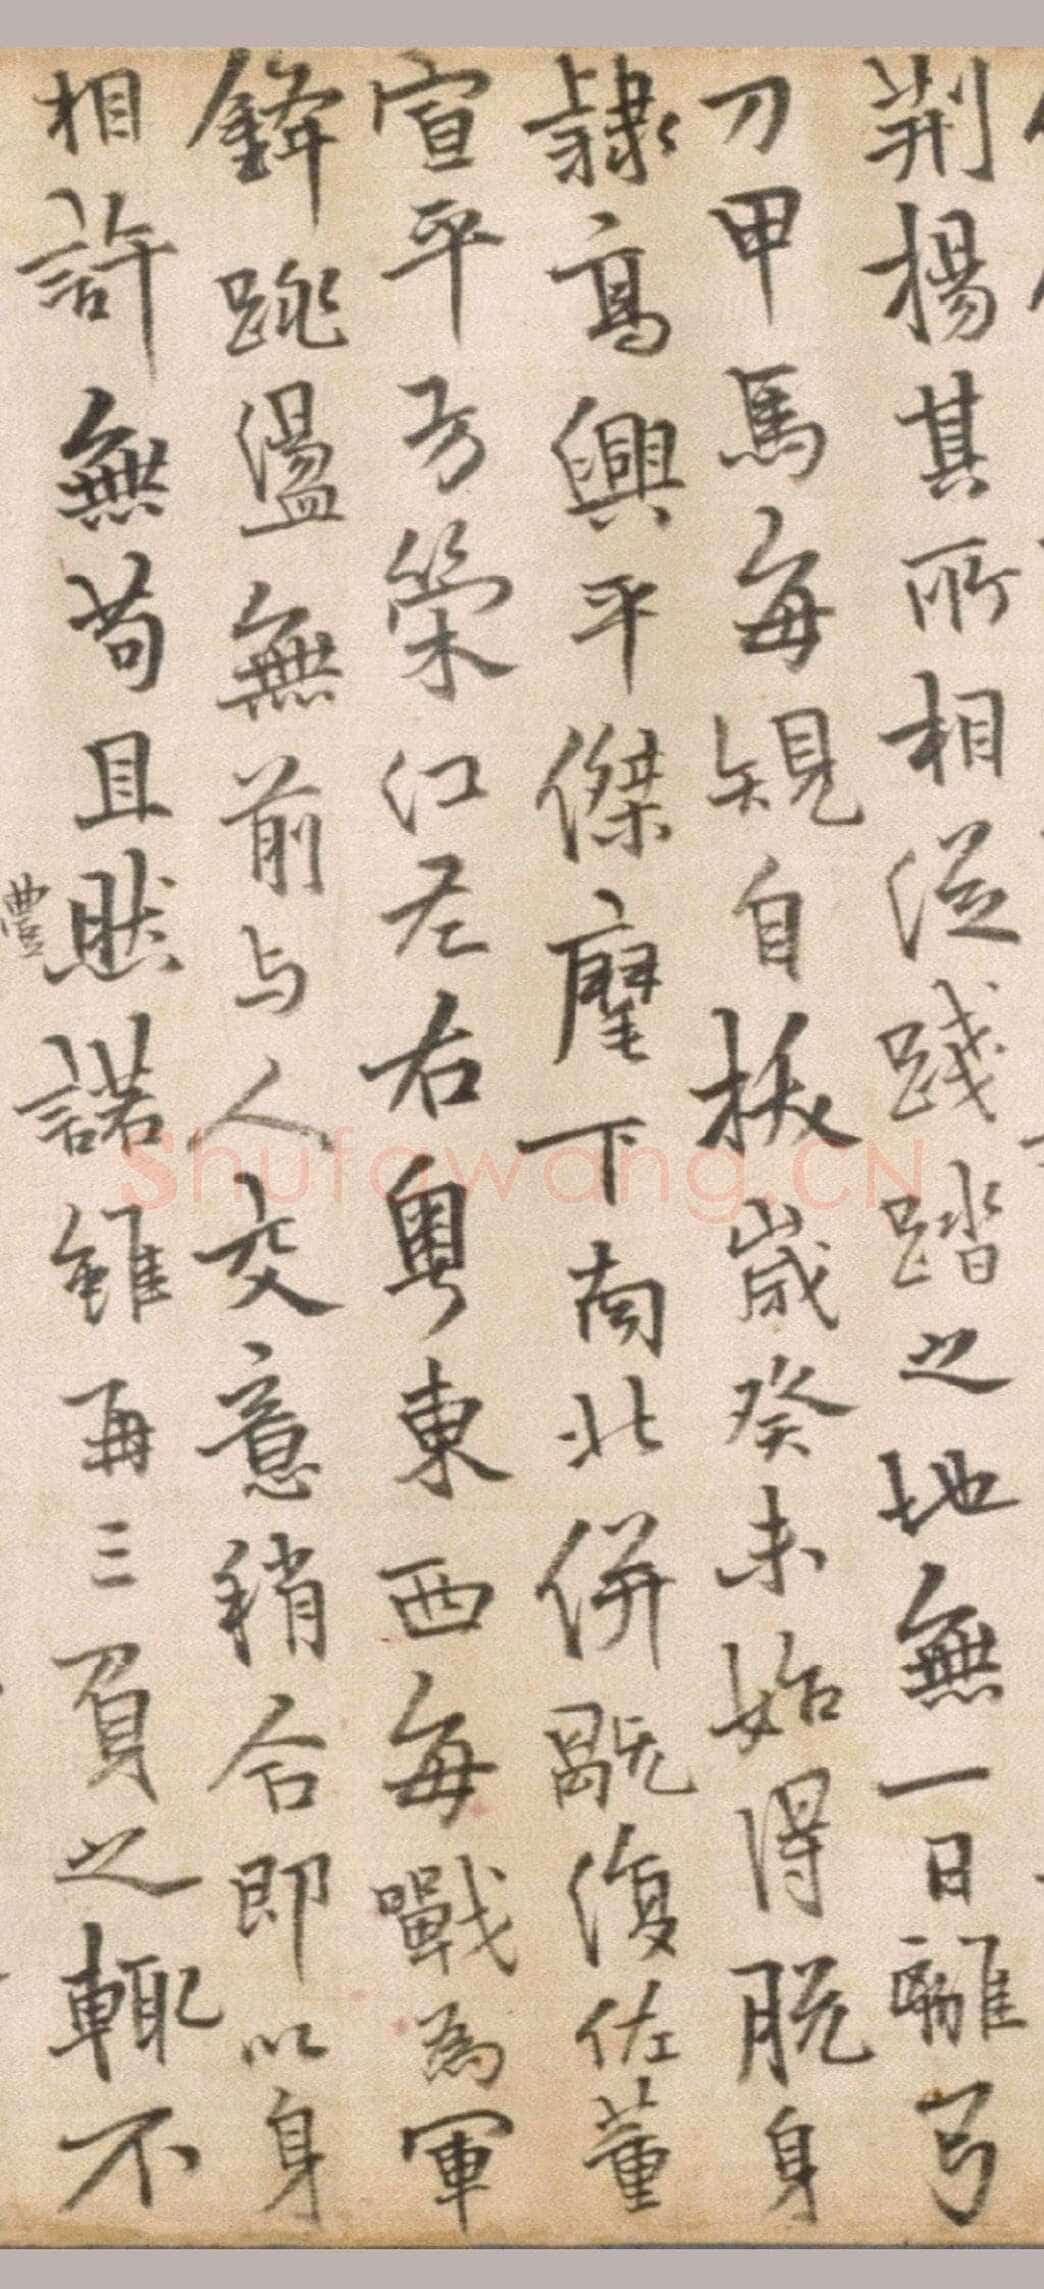 荆楊其所相從踐踏之地無一日離弓
刀甲馬每䂓自拔歲癸未始得脫身
隷高興平傑麾下南北併既復佐董
宣平方筞江左右粵東西每戰為軍
鋒跳盪無前与人交意稍合即以身
相許無苟且然諾雖再三負之輒不
豐
Shufawang.CN